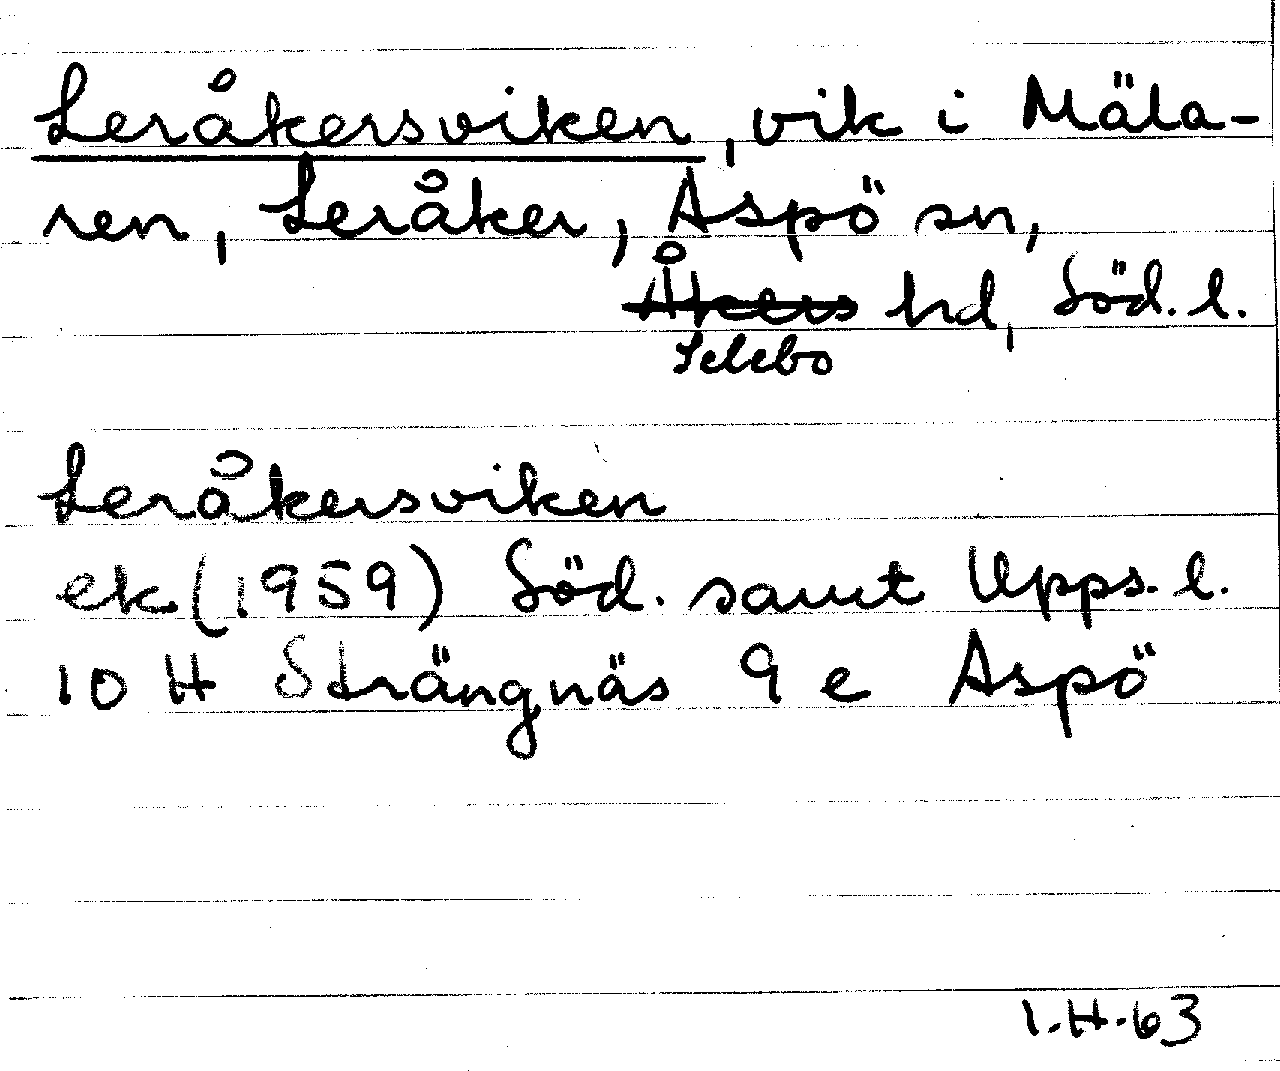 Leråkersviken, vik i Mäla-
ren, Leråker, Aspö sn,
Åkers hd, Söd. l.
Selebo
Leråkersviken
ek (1959) Söd. samt Upps. l.
10 H Strängnäs 9 e Aspö
I.H.63